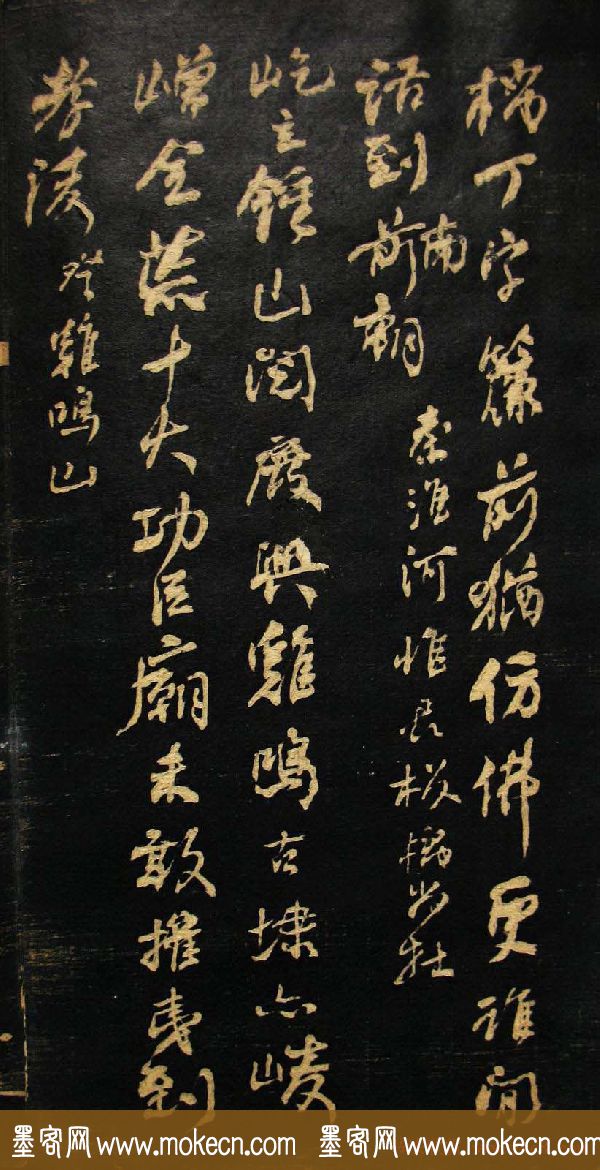 橋丁字簾前猶仿佛更誰閒
話到前南朝 秦淮河惟長板橋
屹立鍾山閱廢興雞鳴古埭亦崚
嶒全荒十大功臣廟未敢摧夷到
孝陵 登雞鳴山
墨客网 www.mokecn.com 墨客网 www.mokecn.com